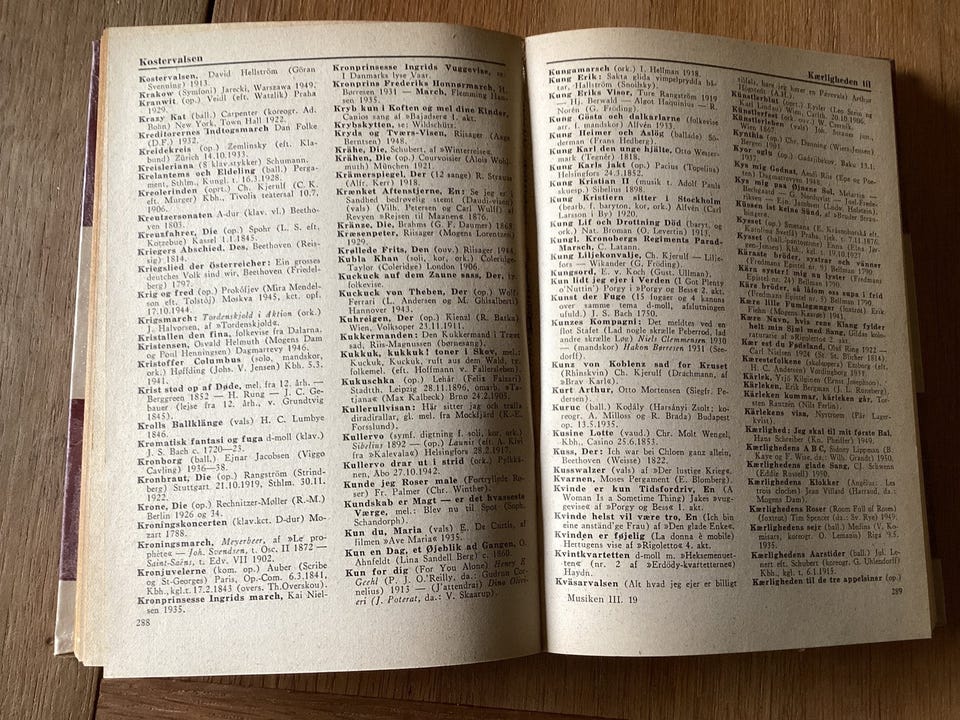 Kostervalsen
Kostervalsen, David Hellström (Göran
Svenning) 1913.
Krakow (Symfoni) Jarecki, Warszawa 1949.
Kranwit (op.) Veidl (eft. Watzlik) Praha
1929.
Krazy Kat (ball.) Carpenter (koreogr. Ad.
Bolm) New York, Town Hall 1922.
Kreditorernes Indtogsmarch Dan Folke
(D.F.) 1932.
Kreidekreis (op.) Zemlinsky (eft. Kla-
bund) Zürich 14.10.1933.
Kreisleriana (8 klav.stykker) Schumann.
Krelantems och Eldeling (ball.) Perga-
ment, Sthlm., Kungl. t. 16.3.1928.
Kreolerinden (oprt.) Ch. Kjerulf (C. K.
eft. Murger) Kbh., Tivolis teatersal 10.7.
1906.
Kreutzersonaten A-dur (klav. vl.) Beetho-
ven 1803.
Kreuzfahrer, Die (op.) Spohr (L. S. eft.
Kotzebue) Kassel 1.1.1845.
Kriegers Abschied, Des, Beethoven (Reis-
sig) 1814.
Kriegslied der österreicher: Ein grosses
deutsches Volk sind wir, Beethoven (Friedel-
berg) 1797.
Krig og fred (op.) Prokófjev (Mira Mendel-
son eft. Tolstój) Moskva 1945, kct. opf.
17.10.1944.
Krigsmarch: Tordenskjold i Aktion (ork.)
J. Halvorsen, af »Tordenskjold«.
Kristallen den fina, folkevise fra Dalarna.
Kristensen, Osvald Helmuth (Mogens Dam
og Poul Henningsen) Dagmarrevy 1946.
Kristoffer Columbus (solo, mandskor,
ork.) Høffding (Johs. V. Jensen) Kbh. 5.3.
1941.
Krist stod op af Døde, mel. fra 12. årh. —
Berggreen 1852 — H. Rung — J. C. Ge-
bauer (lejse fra 12. årh., v. Grundtvig
1845).
Krolls Ballklänge (vals) H. C. Lumbye
1846.
Kromatisk fantasi og fuga d-moll (klav.)
J. S. Bach c. 1720—23.
Kronborg (ball.) Ejnar Jacobsen (Viggo
Cavling) 1936—38.
Kronbraut, Die (op.) Rangström (Strind-
berg) Stuttgart 21.10.1919, Sthlm. 30.11.
1922.
Krone, Die (op.) Rechnitzer-Møller (R.-M.)
Berlin 1926 og 34.
Kroningskoncerten (klav.kct. D-dur) Mo-
zart 1788.
Kroningsmarch, Meyerbeer, af »Le pro-
phète« — Joh. Svendsen, t. Osc. II 1872 —
Saint-Saëns, t. Edv. VII 1902.
Kronjuvelerne (kom. op.) Auber (Scribe
og St-Georges) Paris, Op.-Com. 6.3.1841,
Kbh., kgl.t. 17.2.1843 (overs. Th.Overskou).
Kronprinsesse Ingrids march, Kai Niel-
sen 1935.
288
Kronprinsesse Ingrids Vuggevise, se:
I Danmarks lyse Vaar.
Kronprins Frederiks Honnørmarch, H.
Børresen 1931 — March, Flemming Han-
sen 1935.
Kryb kun i Koften og mel dine Kinder,
Canios sang af »Bajadser« 1. akt.
Krybskytten, se: Wildschütz.
Kryds og Tværs-Visen, Riisager (Asga
Berntsen) 1948.
Krähe, Die, Schubert, af »Winterreise«.
Krähen, Die (op.) Courvoisier (Alois Wohl-
muth) München 1921.
Krämerspiegel, Der (12 sange) R. Strauss
(Alfr. Kerr) 1918.
Krønket Aftenstjerne, En: Se jeg er i
Sandhed bedrøvelig stemt (Daudi-visen)
(vals) (Vilh. Petersen og Carl Wulff) af
Revyen »Rejsen til Maanen« 1876.
Kränze, Die, Brahms (G. F. Daumer) 1868.
Kræsenpeter, Riisager (Mogens Lorentzen)
1929.
Krøllede Frits, Den (ouv.) Riisager 1948.
Kubla Khan (soli, kor, ork.) Coleridge-
Taylor (Coleridge) London 1906.
Kuckuck auf dem Zaune sass, Der, ty.
folkevise.
Kuckuck von Theben, Der (op.) Wolf-
Ferrari (L. Andersen og M. Ghisalberti)
Hannover 1943.
Kuhreigen, Der (op.) Kienzl (R. Batka)
Wien, Volksoper 23.11.1911.
Kukkermanden: Den Kukkermand i Træet
sad, Riis-Magnussen (børnesang).
Kukkuk, kukkuk! toner i Skov, mel.:
Kuckuck, Kuckuck, ruft aus dem Wald, ty.
folkemel. (eft. Hoffmann v. Fallersleben).
Kukuschka (op.) Lehár (Felix Falzari)
Stadtth. Leipzig 28.11.1896, omarb. »Ta-
tjana« (Max Kalbeck) Brno 24.2.1905.
Kullerullvisan: Här sitter jag och tralla
diradirallar, gl. mel. fra Mockfjärd (K.-E.
Forsslund).
Kullervo (symf. digtning f. soli, kor, ork.)
Sibelius 1892 — (op.) Launis (eft. A. Kivi
fra »Kalevala«) Helsingfors 28.2.1917.
Kullervo drar ut i strid (ork.) Pylkkä-
nen, Abo 27.10.1942.
Kunde jeg Roser male (Fortryllede Ro-
ser) Fr. Palmer (Chr. Winther).
Kundskab er Magt — er det hvasseste
Værge, mel.: Blev nu til Spot (Soph.
Schandorph).
Kun du, Maria (vals) E. De Curtis, af
filmen »Ave Maria« 1935.
Kun en Dag, et Øjeblik ad Gangen, O.
Ahnfeldt (Lina Sandell Berg) c. 1860.
Kun for dig (For You Alone) Henry E.
Geehl (P. J. O'Reilly, da.: Gudrun Cor-
nelius) 1915 — (J'attendrai) Dino Olivi-
eri (J. Poterat, da.: V. Skaarup).
Kærligheden til
Kungamarsch (ork.) I. Hellman 1938.
Kung Erik: Sakta glida vimpelprydda bå-
tar, Hallström (Snoilsky).
Kung Eriks Visor, Ture Rangström 1919
— Hj. Berwald — Algot Haquinius — R.
Norén (G. Fröding).
Kung Gösta och dalkarlarne (folkevise
arr. f. mandskor) Alfvén 1913.
Kung Heimer och Aslög (ballade) Söder-
man (Frans Hedberg).
Kung Karl den unge hjälte, Otto Wester-
mark (Tegnér) 1818.
Kung Karls jakt (op.) Pacius (Topelius)
Helsingfors 24.3.1852.
Kung Kristian II (musik t. Adolf Pauls
skuesp.) Sibelius 1898.
Kung Kristiern sitter i Stockholm
(bearb. f. baryton, kor, ork.) Alfvén (Carl
Larsson i By) 1920.
Kung Lif och Drottning Död (baryt. og
ork.) Nat. Broman (O. Levertin) 1915.
Kungl. Kronobergs Regiments Parad-
Marsch, C. Latann.
Kung Liljekonvalje, Ch. Kjerulf — Lilje-
fors — Wikander (G. Fröding).
Kungsord, E. v. Koch (Gust. Ullman).
Kun lidt jeg ejer i Verden (I Got Plenty
o'Nuttin') Porgy i »Porgy og Bess« 2. akt.
Kunst der Fuge (15 fugaer og 4 kanons
over samme tema d-moll, afslutningen
ufuld.) J. S. Bach 1750.
Kunzes Kompagni: Det meldtes ved en
flot Stafet (Lad nogle skrælle Peberrod, lad
andre skrælle Løg) Niels Clemmensen 1930
— (mandskor) Hakon Børresen 1931 (See-
dorff).
Kunz von Koblenz sad for Kruset
(Rhinskvin) Ch. Kjerulf (Drachmann, af
»Brav Karl«).
Kurt Arthur, Otto Mortensen (Sigfr. Pe-
dersen).
Kuruc (ball.) Kodály (Harsányi Zsolt; ko-
reogr. A. Milloss og R. Brada) Budapest
op. 13.5.1935.
Kusine Lotte (vaud.) Chr. Molt Wengel,
Kbh., Casino 25.6.1853.
Kuss, Der: Ich war bei Chloen ganz allein,
Beethoven (Weisse) 1822.
Kusswalzer (vals) af »Der lustige Krieg«.
Kvarnen, Moses Pergament (E. Blomberg).
Kvinde er kun Tidsfordriv, En (A
Woman Is a Sometime Thing) Jakes »vug-
gevise« af »Porgy og Bess« 1. akt.
Kvinde helst vil være tro, En (Ich bin
eine anständ'ge Frau) af »Den glade Enke«.
Kvinden er føjelig (La donna è mobile)
Hertugens vise af »Rigoletto« 4. akt.
Kvintkvartetten d-moll m. »Heksemenuet-
ten« (nr. 2 af »Erdödy-kvartetterne«)
Haydn.
Kväsarvalsen (Alt hvad jeg ejer er billigt
Musiken III. 19
stilfuldt, bare jeg hører en Päreväls) Arthur
Högstedt (A.H.)
Künstlerblut (oprt.) Eysler (Leo Stein og
Karl Lindau) Wien, Carlth. 20.10.1906.
Künstlerfest (ork. ouv.) W. Czernik.
Künstlerleben (vals) Joh. Strauss jun.,
Wien 1867.
Kynthia (op.) Chr. Danning (Wiers-Jensen)
Bergen 1903.
Kyor ogly (op.) Gadsjibékov, Baku 13.1.
1937.
Kys mig Godnat, Amdi Riis (Epe og Poe-
ten) Dagmarrevyen 1948.
Kys mig paa Øjnene Sol, Melartin —
Bechgaard — O. Nordqvist — Jul. Frede-
riksen — Ejn. Jacobsen (Ludv. Holstein).
Küssen ist keine Sünd, af »Bruder Strau-
bingere.
Kysset (op.) Smetana (E. Krásnohorská eft.
Karolina Světlá) Praha, tjek. t. 7.11.1876.
Kysset (ball.-pantomime) Enna (Ellen Jør-
gen-Jensen) Kbh., kgl. t. 19.10.1927
Käraste bröder, systrar och vänner
(Fredmans Epistel nr. 9) Bellman 1790.
Kära syster! mig nu lyster (Fredmans
Epistel nr. 24) Bellman 1790.
Käre bröder, så låtom oss supa i frid
(Fredmans Epistel nr. 5) Bellman 1790.
Kære lille Fumlegænger (foxtrot) Erik
Fiehn (Mogens Kaarøe) 1941.
Kære Navn, hvis rene Klang fylder
helt min Sjæl med Sang, Gildas kolo-
raturarie af »Rigoletto« 2. akt.
Kær est du Fødeland, Oluf Ring 1922 —
Carl Nielsen 1924 (St. St. Blicher 1814).
Kæresten (skolopera) Emborg (eft.
H. C. Andersen) Vordingborg 1938.
Kärlek, Yrjö Kilpinen (Ernst Josephson).
Kärleken, Erik Bergman (J. L. Runeberg).
Kärleken kommer, kärleken går, Tor-
sten Rautzén (Nils Ferlin).
Kärlekens visa, Nyström (Pär Lager-
kvist).
Kærlighed: Jeg skal til mit første Bal,
Hans Schreiber (Kn. Pheiffer) 1949.
Kærlighedens ABC, Sidney Lippman (B.
Kaye og F. Wise, da.: Willy Grandt) 1950.
Kærlighedens glade Sang, CJ. Schwenn
(Eddie Russell) 1950.
Kærlighedens Klokker (Angélus: Les
trois cloches) Jean Villard (Harraud, da.:
Mogens Dam).
Kærlighedens Roser (Room Full of Roses)
(foxtrot) Tim Spencer (da.: Sv. Rye) 1949.
Kærlighedens sejr (ball.) Melius (V. Ko-
misars, koreogr. O. Lemanis) Riga 9.5.
1935.
Kærlighedens Aarstider (ball.) Jul. Le-
nert eft. Schubert (koreogr. G. Uhlendorff)
Kbh., kgl. t. 6.1.1915.
Kærligheden til de tre appelsiner (op.)
289